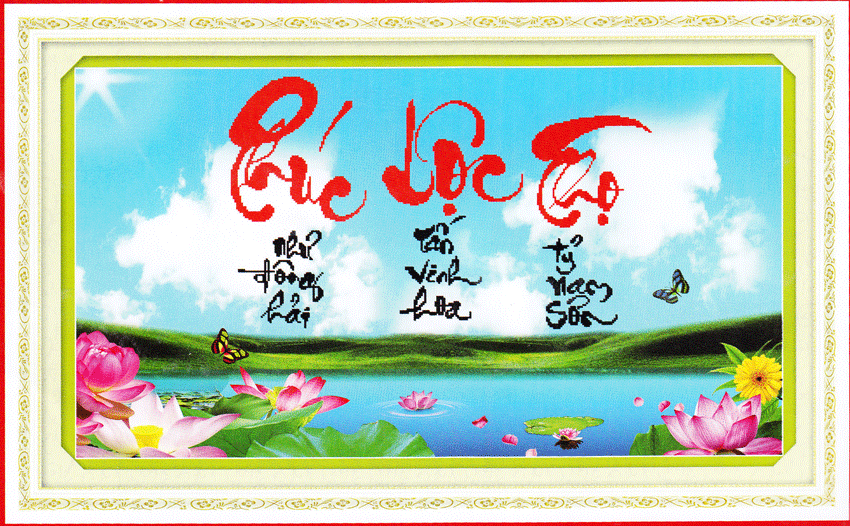 Phúc Lộc Thọ
như
đông
hải
tấn
vinh
hoa
tỷ
nam
sơn